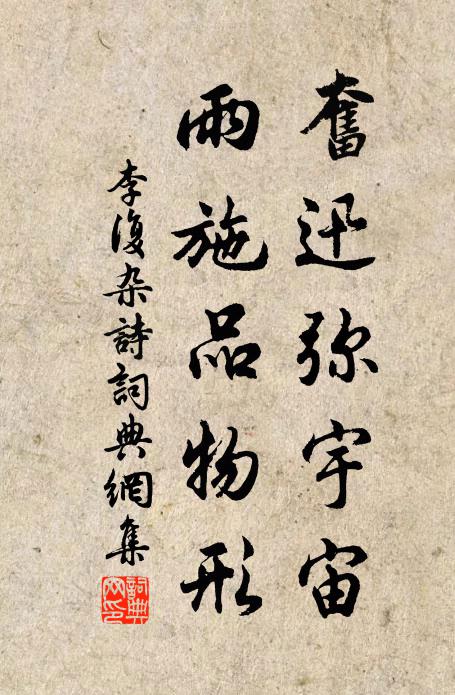 奮迅弥宇宙
雨施品物形
李復杂詩詞典網集
詞典網印